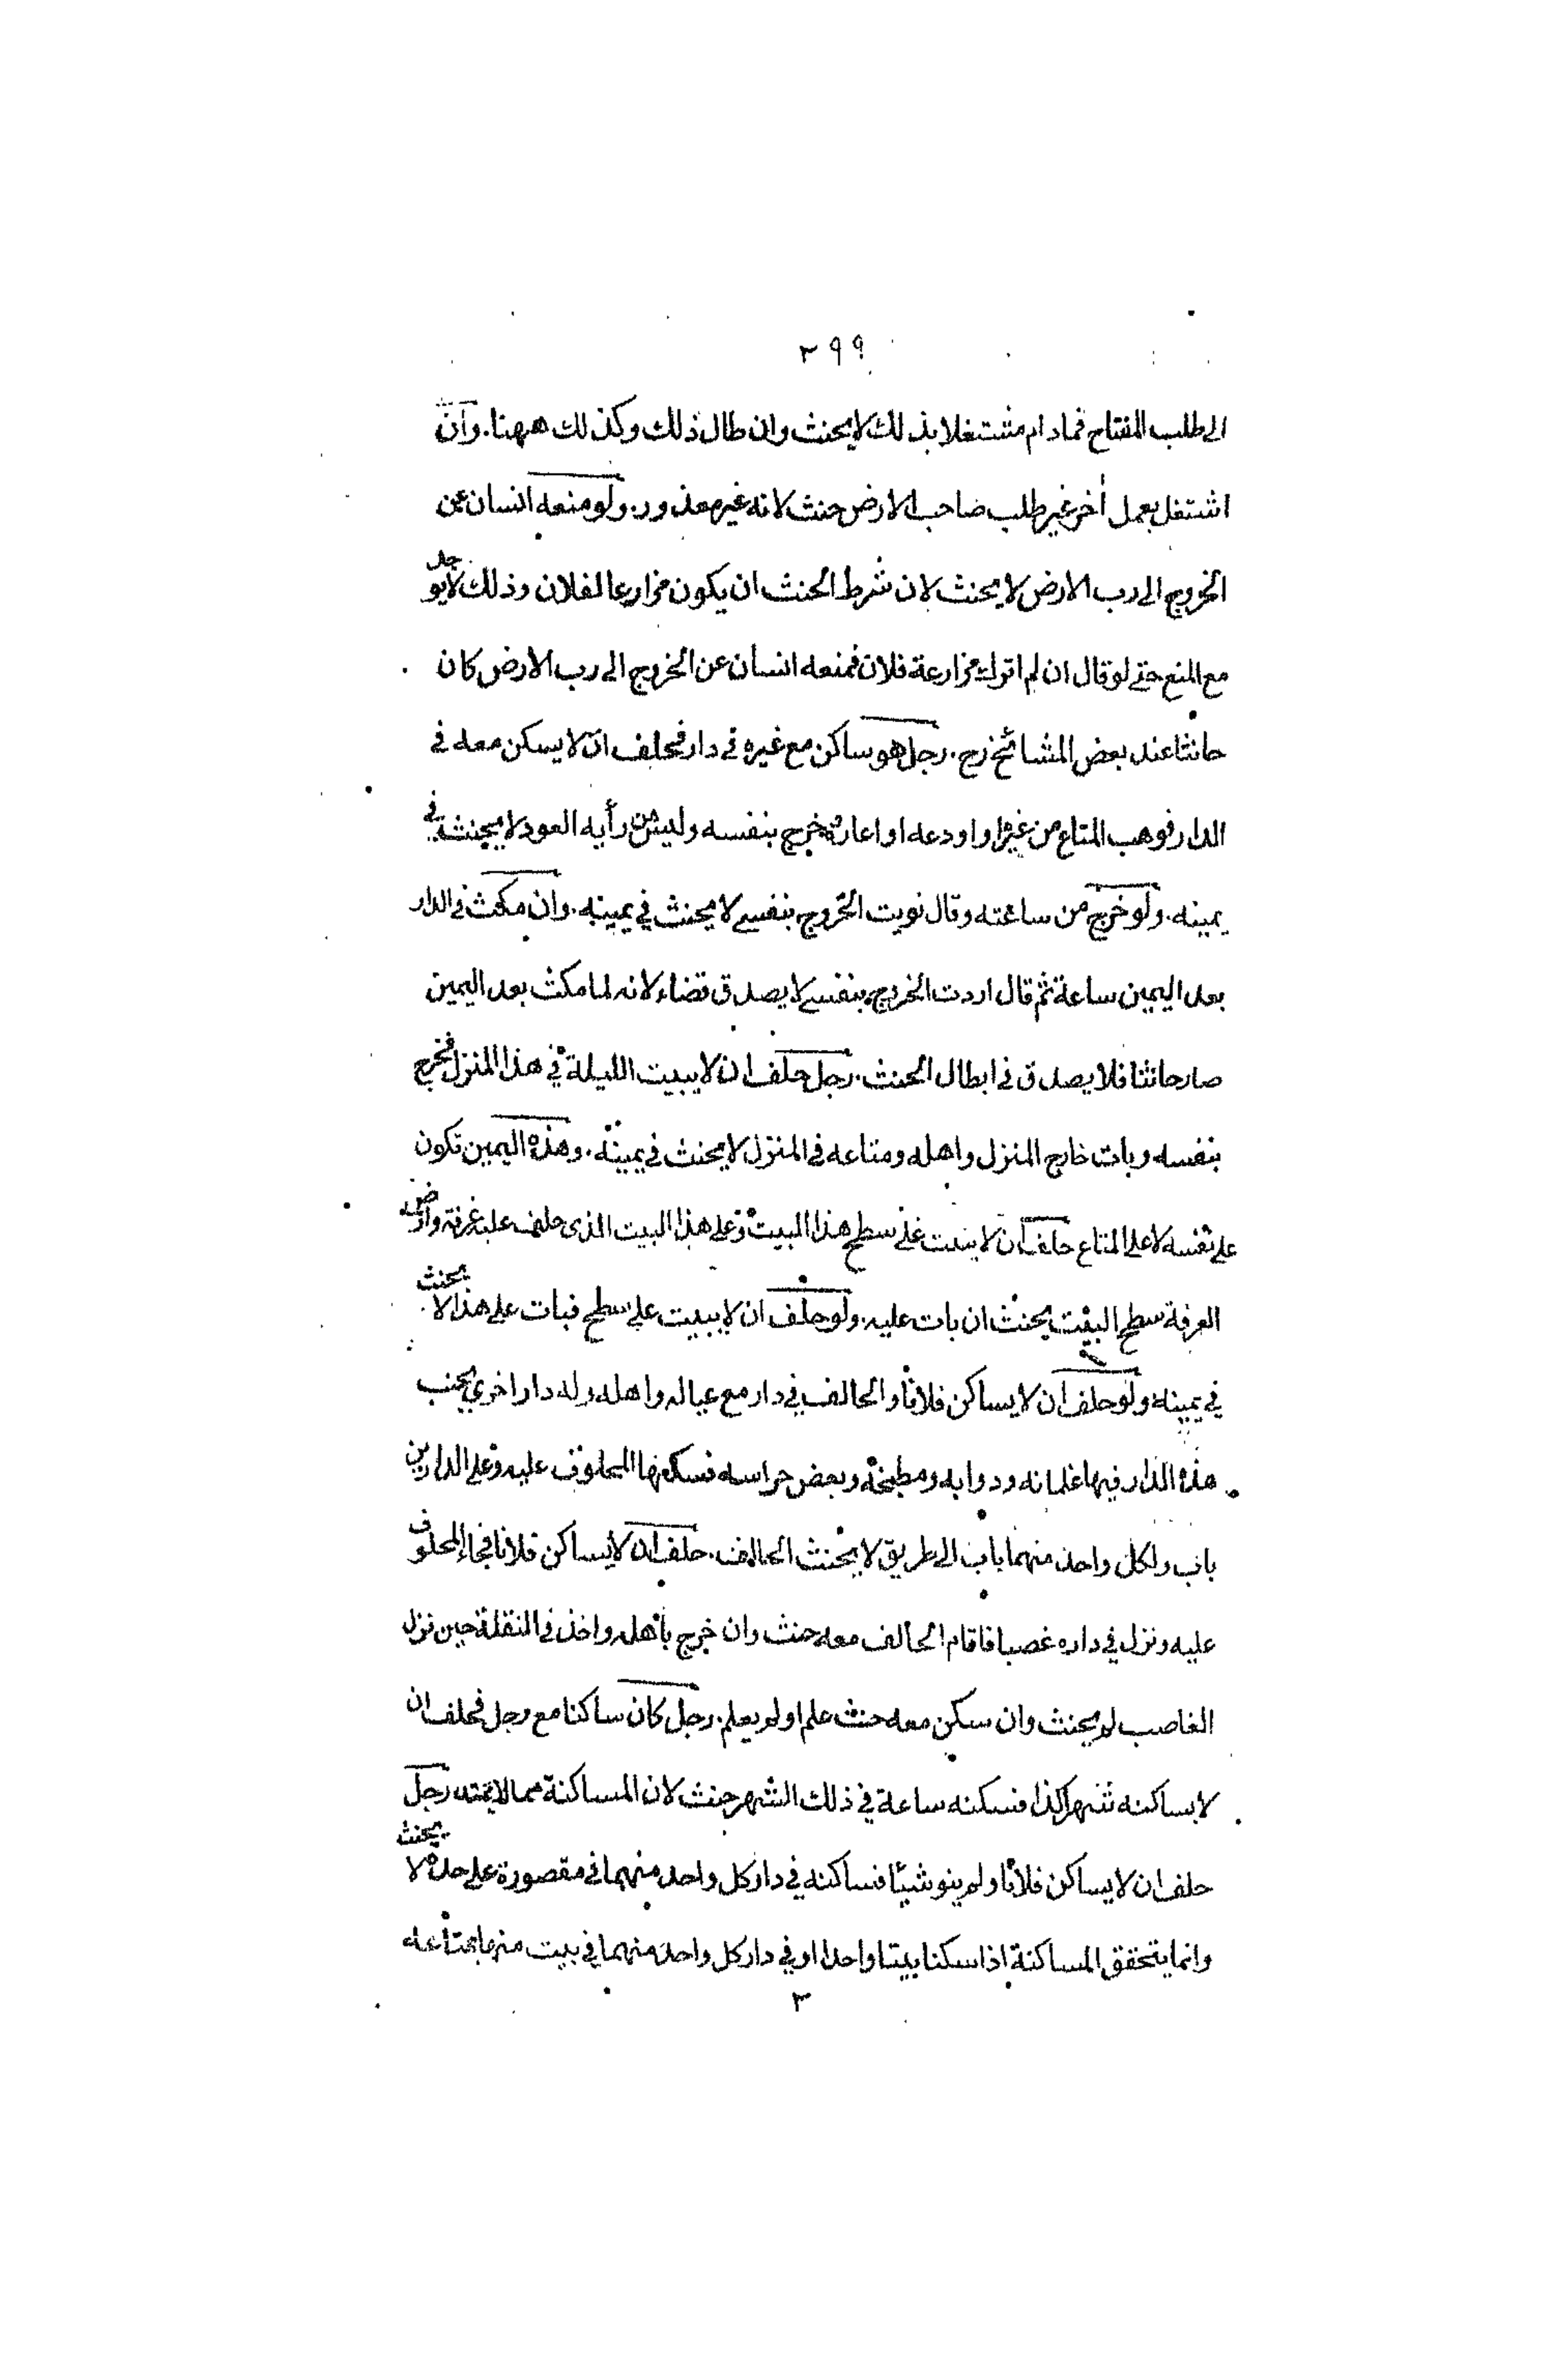 ٣٩٩
الى طلب المفتاح فمادام مشتغلا بذلك لا يحنث وان طال ذلك وكذلك ههنا. وان
اشتغل بعمل أخر غير طلب صاحب الارض حنث لانه غير معذور. ولو منعه انسان عن
الخروج الى رب الارض لا يحنث لان شرط الحنث ان يكون مزارعا لفلان وذلك لا يوجد
مع المنع حتى لو قال ان لم اترك مزارعة فلان فمنعه انسان عن الخروج الى رب الارض كان
حانثا عند بعض المشائخ رح. رجل هو ساكن مع غيره في دار فحلف ان لا يسكن معه في
الدار فوهب المتاع من غيره او اودعه او اعاره وخرج بنفسه وليس من رأيه العود لا يحنث في
يمينه. ولو خرج من ساعته وقال نويت الخروج بنفسي لا يحنث في يمينه. وان مكث في الدار
بعد اليمين ساعة ثم قال اردت الخروج بنفسي لا يصدق قضاء لانه لما مكث بعد اليمين
صار حانثا فلا يصدق في ابطال الحنث. رجل حلف ان لا يبيت الليلة في هذا المنزل فخرج
بنفسه وبات خارج المنزل واهله ومتاعه في المنزل لا يحنث في يمينه. وهذه اليمين تكون
على نفسه لا على المتاع حلف ان لا يبيت على سطح هذا البيت وعلى هذا البيت الذى حلف عليه غرفة وارض
الغرفة سطح البيت يحنث ان بات عليه. ولو حلف ان لا يبيت على سطح فبات على هذا لا يحنث
في يمينه ولو حلف ان لا يساكن فلانا والحالف في دار مع عياله واهله وله دار اخرى بجنب
هذه الدار فيها غلمانه ودوابه ومطبخه وبعض حراسه فسكنها المحلوف عليه وعلى الدارين
باب ولكل واحد منهما باب الى طريق لا يحنث الحالف. حلف ان لا يساكن فلانا فجاء المحلوف
عليه ونزل في داره غصبا فاقام الحالف معه حنث وان خرج بأهله واخذ في النقلة حين نزل
الغاصب لم يحنث وان سكن معه حنث علم او لم يعلم. رجل كان ساكنا مع رجل فحلف ان
لا يساكنه شهر كذا فسكنه ساعة في ذلك الشهر حنث لان المساكنة مما لا يمتد رجل
حلف ان لا يساكن فلانا ولم ينو شيئا فساكنه في دار كل واحد منهما في مقصورة على حدة لا يحنث
وانما يتحقق المساكنة اذا سكنا بيتا واحدا او في دار كل واحد منهما في بيت منها بمتاعه
٣